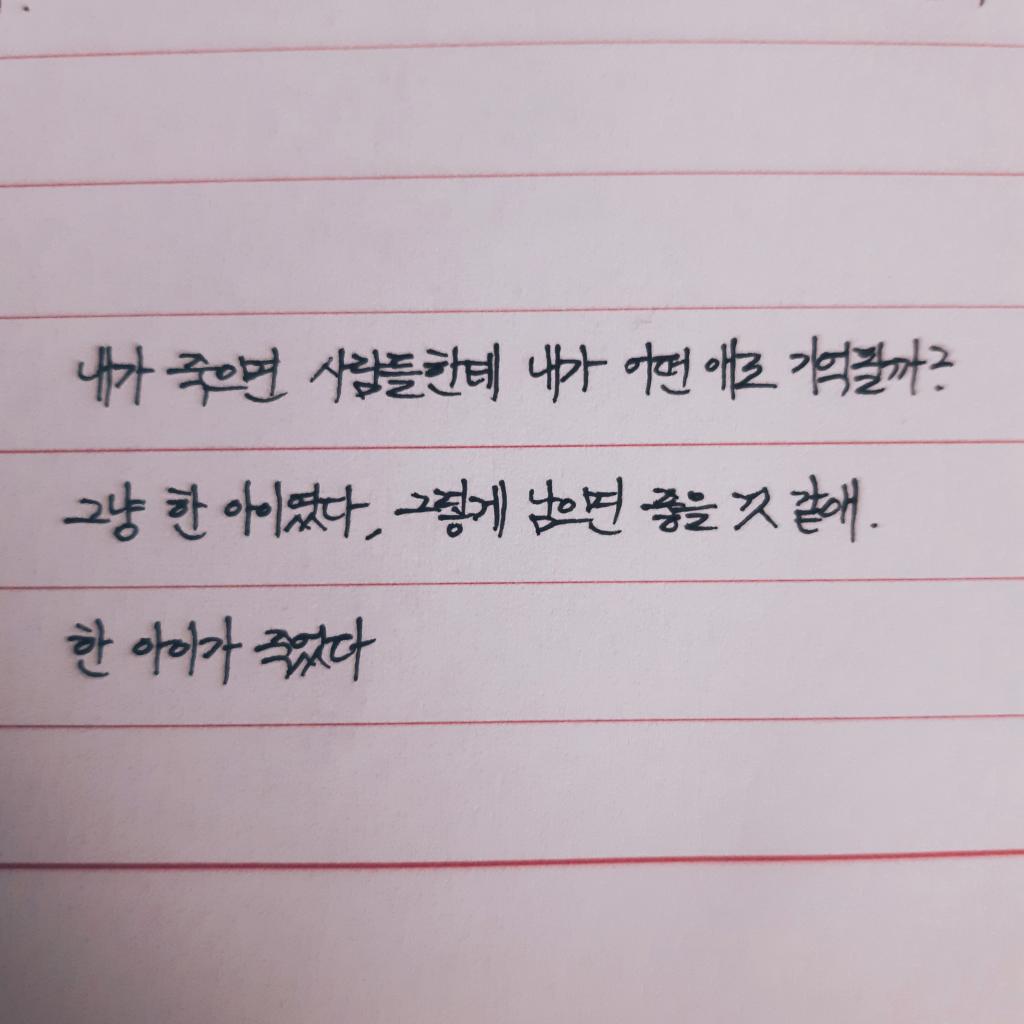 내가 죽으면 사람들한테 내가 어떤 애로 기억될까?
그냥 한 아이였다, 그렇게 남으면 좋을 것 같애.
한 아이가 죽었다